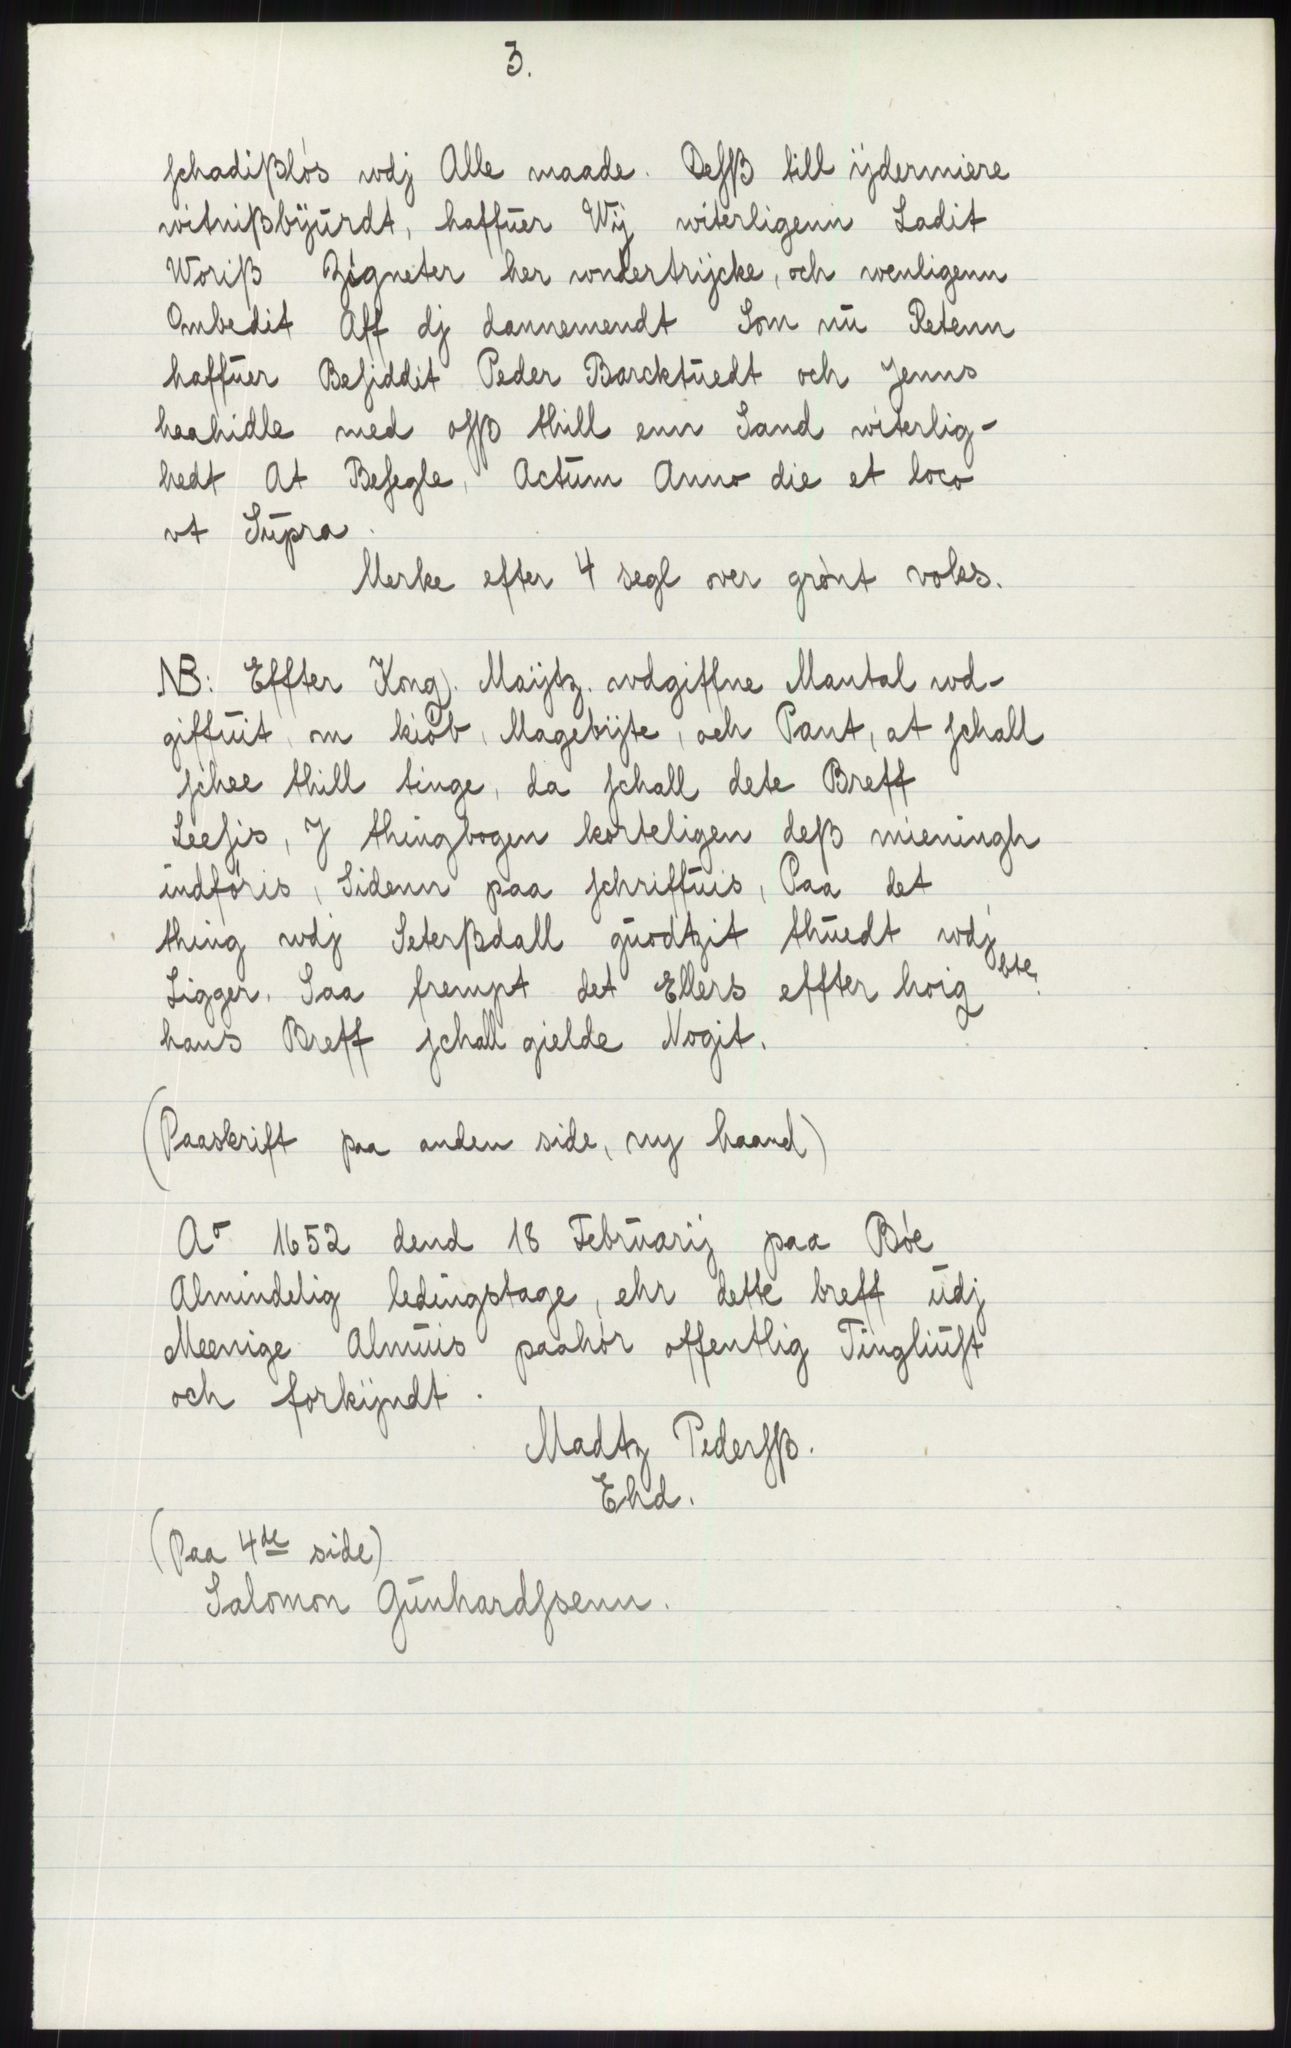 3.
schadißløs wdj Alle maade. Desß till ÿdermiere
witnißbÿurdt, haffuer Wij witerligenn Ladit
Woriß Zigneter her wndertrijcke, och wenligenn
Ombedit Aff dj dannemendt Som nu Retenn
haffuer Besiddit Peder Barcktuedt och Jenns
haahidle med osß thill enn Sand witerlig-
hedt At Besegle, Actum Anno die et loco
vt Supra.
Merke efter 4 segl over grønt voks.
NB: Effter Kong. Maÿtz. wdgiffne Mantal wd-
giffuit, om kiøb, Magebÿte, och Pant, at schall
schee thill tinge, da schall dete Breff
Leesis, J thingbogen korteligen deß mieningh
indføris, Sidenn paa schriffuis, Paa det
thing wdj Seterßdall guodtzit thuedt wdj
Ligger. Saa frempt det Ellers effter høig bte.
hans Breff schall gielde Nogit.
(Paaskrift paa anden side, ny haand)
Ao 1652 dend 18 Februarij paa Bøe
Almindelig ledingstage, ehr dette breff udj
Meenige Almuis paahør offentlig Tingliust
och forkÿndt.
Madtz Pedersß.
Ehd.
(Paa 4de side)
Salomon Gunhardssenn.